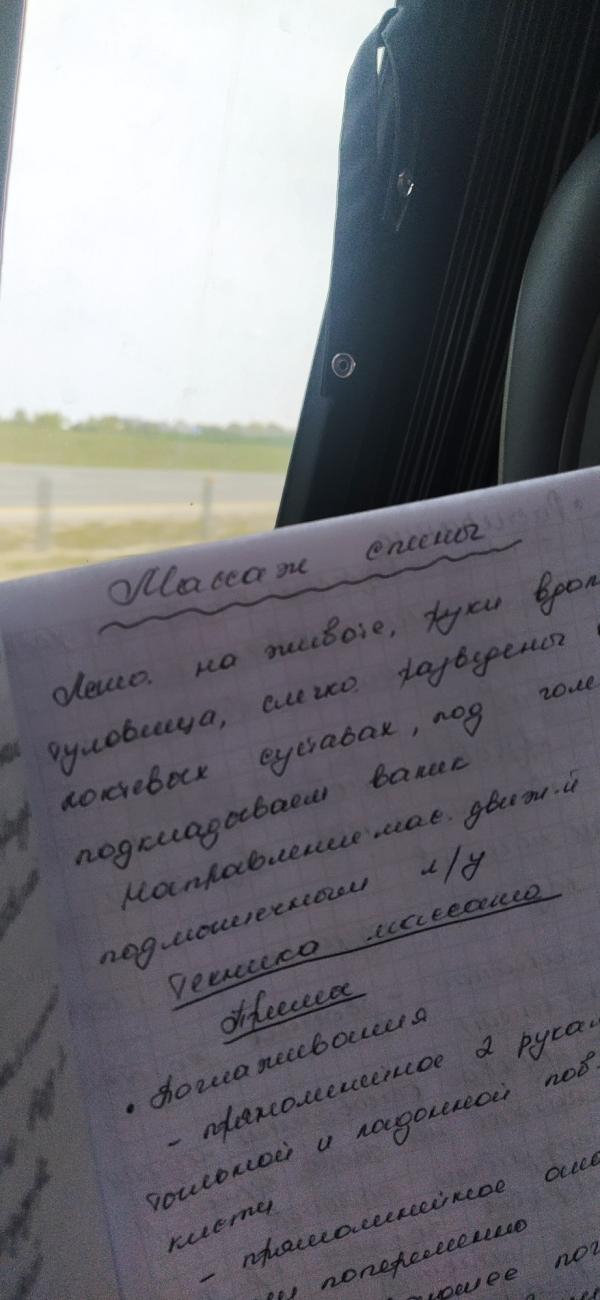 Массаж спины
Лежа на животе, руки вдоль
туловища, слегка разведены
локтевых суставах, под голе
подкладываем валик
Направление мас. движ-й
подмышечным л/у
Техника массажа
Приемы
• Поглаживания
- прямолинейное 2 рука
тыльной и ладонной пов.
кисти
- прямолинейное
попеременно